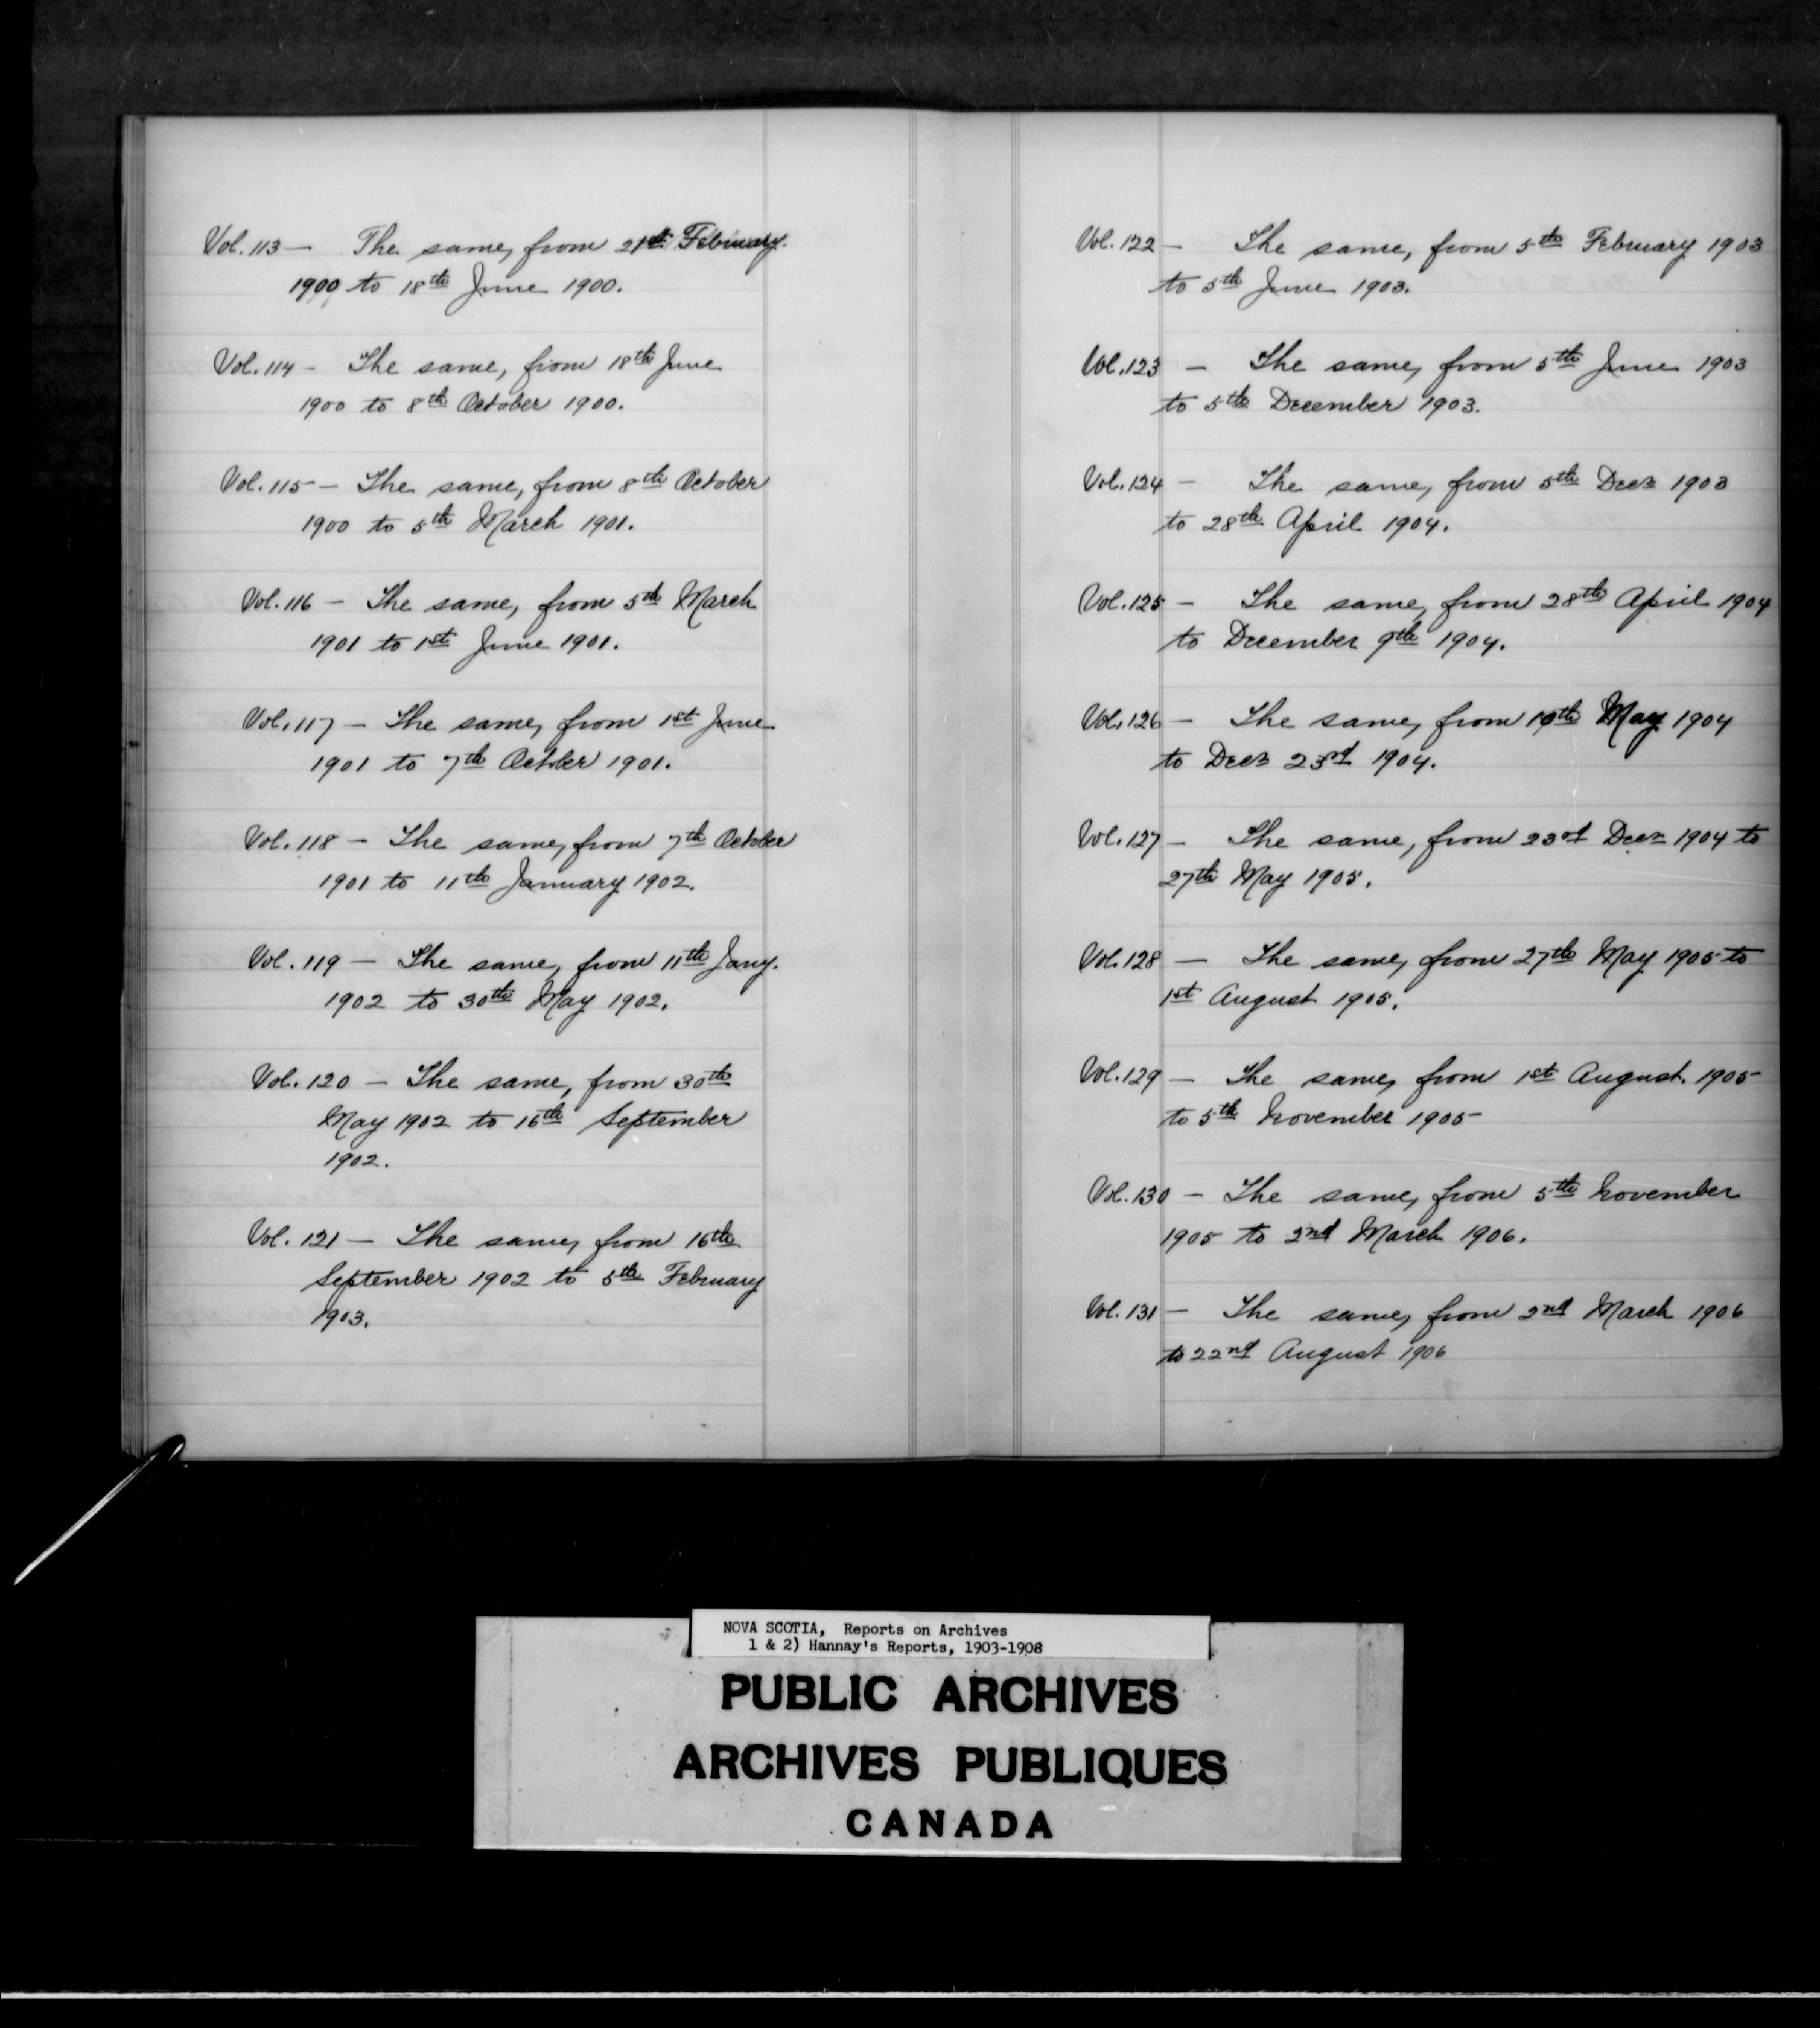 Vol. 113 — The same, from 21st February
1900 to 18th June 1900.
Vol. 114 - The same, from 18th June
1900 to 8th October 1900.
Vol. 115 - The same, from 8th October
1900 to 5th March 1901.
Vol. 116 - The same, from 5th March
1901 to 1st June 1901.
Vol. 117 - The same, from 1st June
1901 to 7th October 1901.
Vol. 118 - The same, from 7th October
1901 to 11th January 1902.
Vol. 119 - The same, from 11th Jany.
1902 to 30th May 1902.
Vol. 120 - The same, from 30th
May 1902 to 16th September
1902.
Vol. 121 - The same, from 16th
September 1902 to 5th February
1903.
Vol. 122 - The same, from 5th February 1903
to 5th June 1903.
Vol. 123 - The same, from 5th June 1903
to 5th December 1903.
Vol. 124 - The same, from 5th Decr 1903
to 28th April 1904.
Vol. 125 - The same, from 28th April 1904
to December 9th 1904.
Vol. 126 - The same, from May 1904
to Decr 23rd 1904.
Vol. 127 - The same, from 23rd Decr 1904 to
27th May 1905.
Vol. 128 - The same, from 27th May 1905 to
1st August 1905.
Vol. 129 - The same, from 1st August. 1905
to 5th November 1905
Vol. 130 - The same, from 5th November
1905 to 2nd March 1906.
Vol. 131 - The same, from 2nd March 1906
to 22nd August 1906
NOVA SCOTIA, Reports on Archives
1 & 2) Hannay's Reports, 1903-1908
PUBLIC ARCHIVES
ARCHIVES PUBLIQUES
CANADA